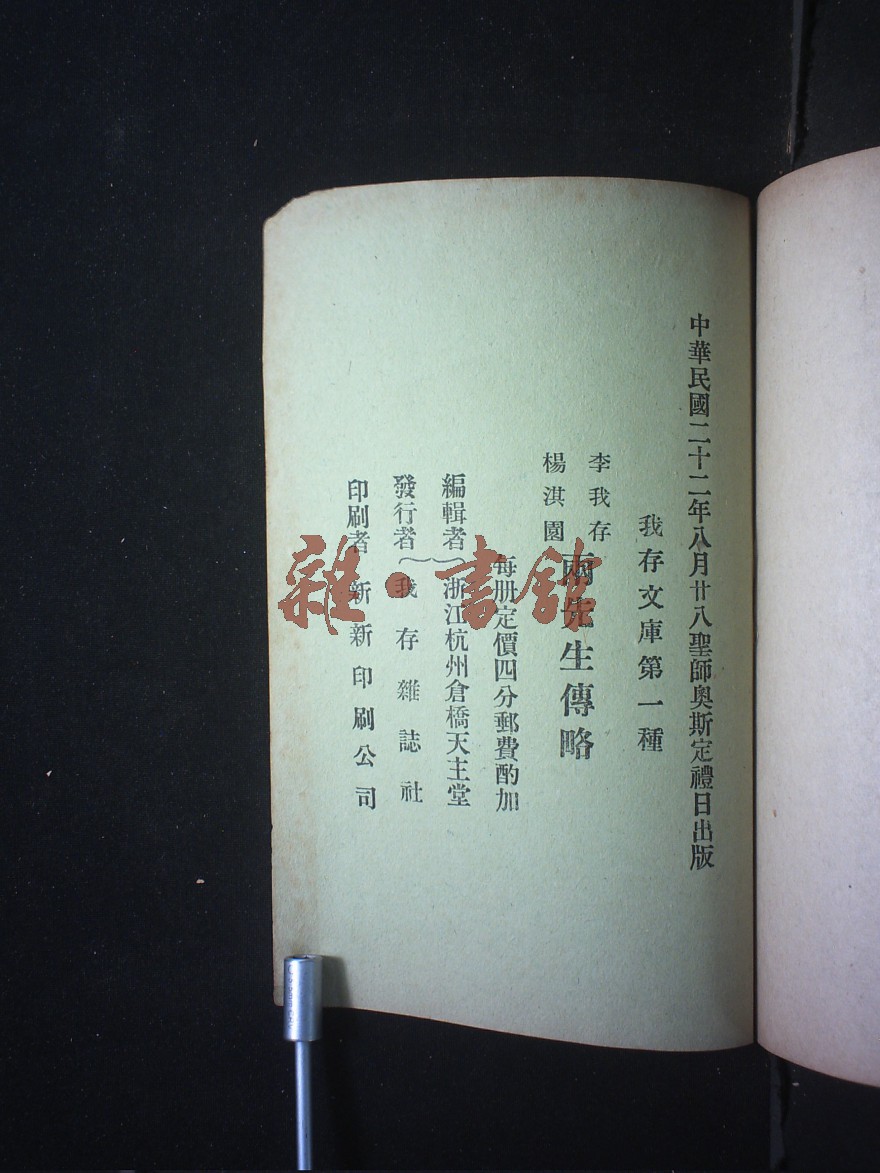 中華民國二十二年八月廿八聖師奧斯定禮日出版
我存文庫第一種
李我存
楊淇園
兩先生傳略
每册定價四分郵費酌加
編輯者
發行者
浙江杭州倉橋天主堂
我存雜誌社
印刷者 新新印刷公司
雜·書館